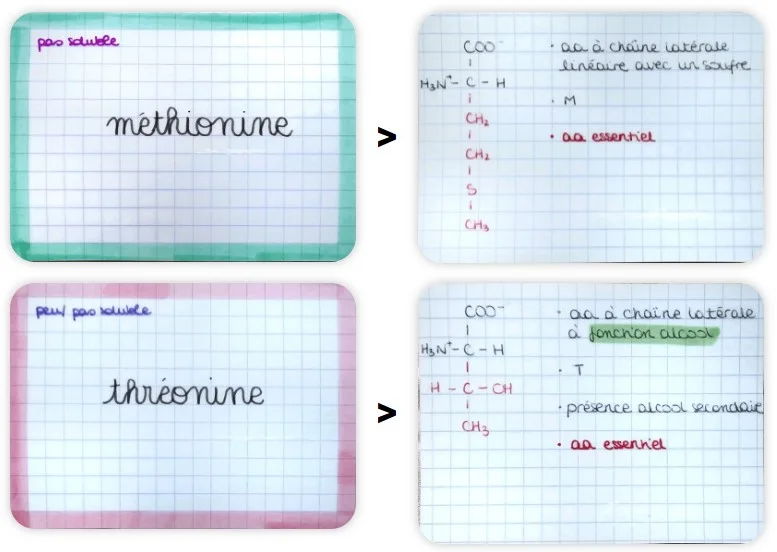 pas soluble
méthionine
>
COO⁻
H₃N⁺ - C - H
CH₂
CH₂
S
CH₃
• aa à chaîne latérale
linéaire avec un soufre
• M
• aa essentiel
peu/ pas soluble
thréonine
>
COO⁻
H₃N⁺ - C - H
H - C - OH
CH₃
• aa à chaîne latérale
à fonction alcool
• T
• présence alcool secondaire
• aa essentiel